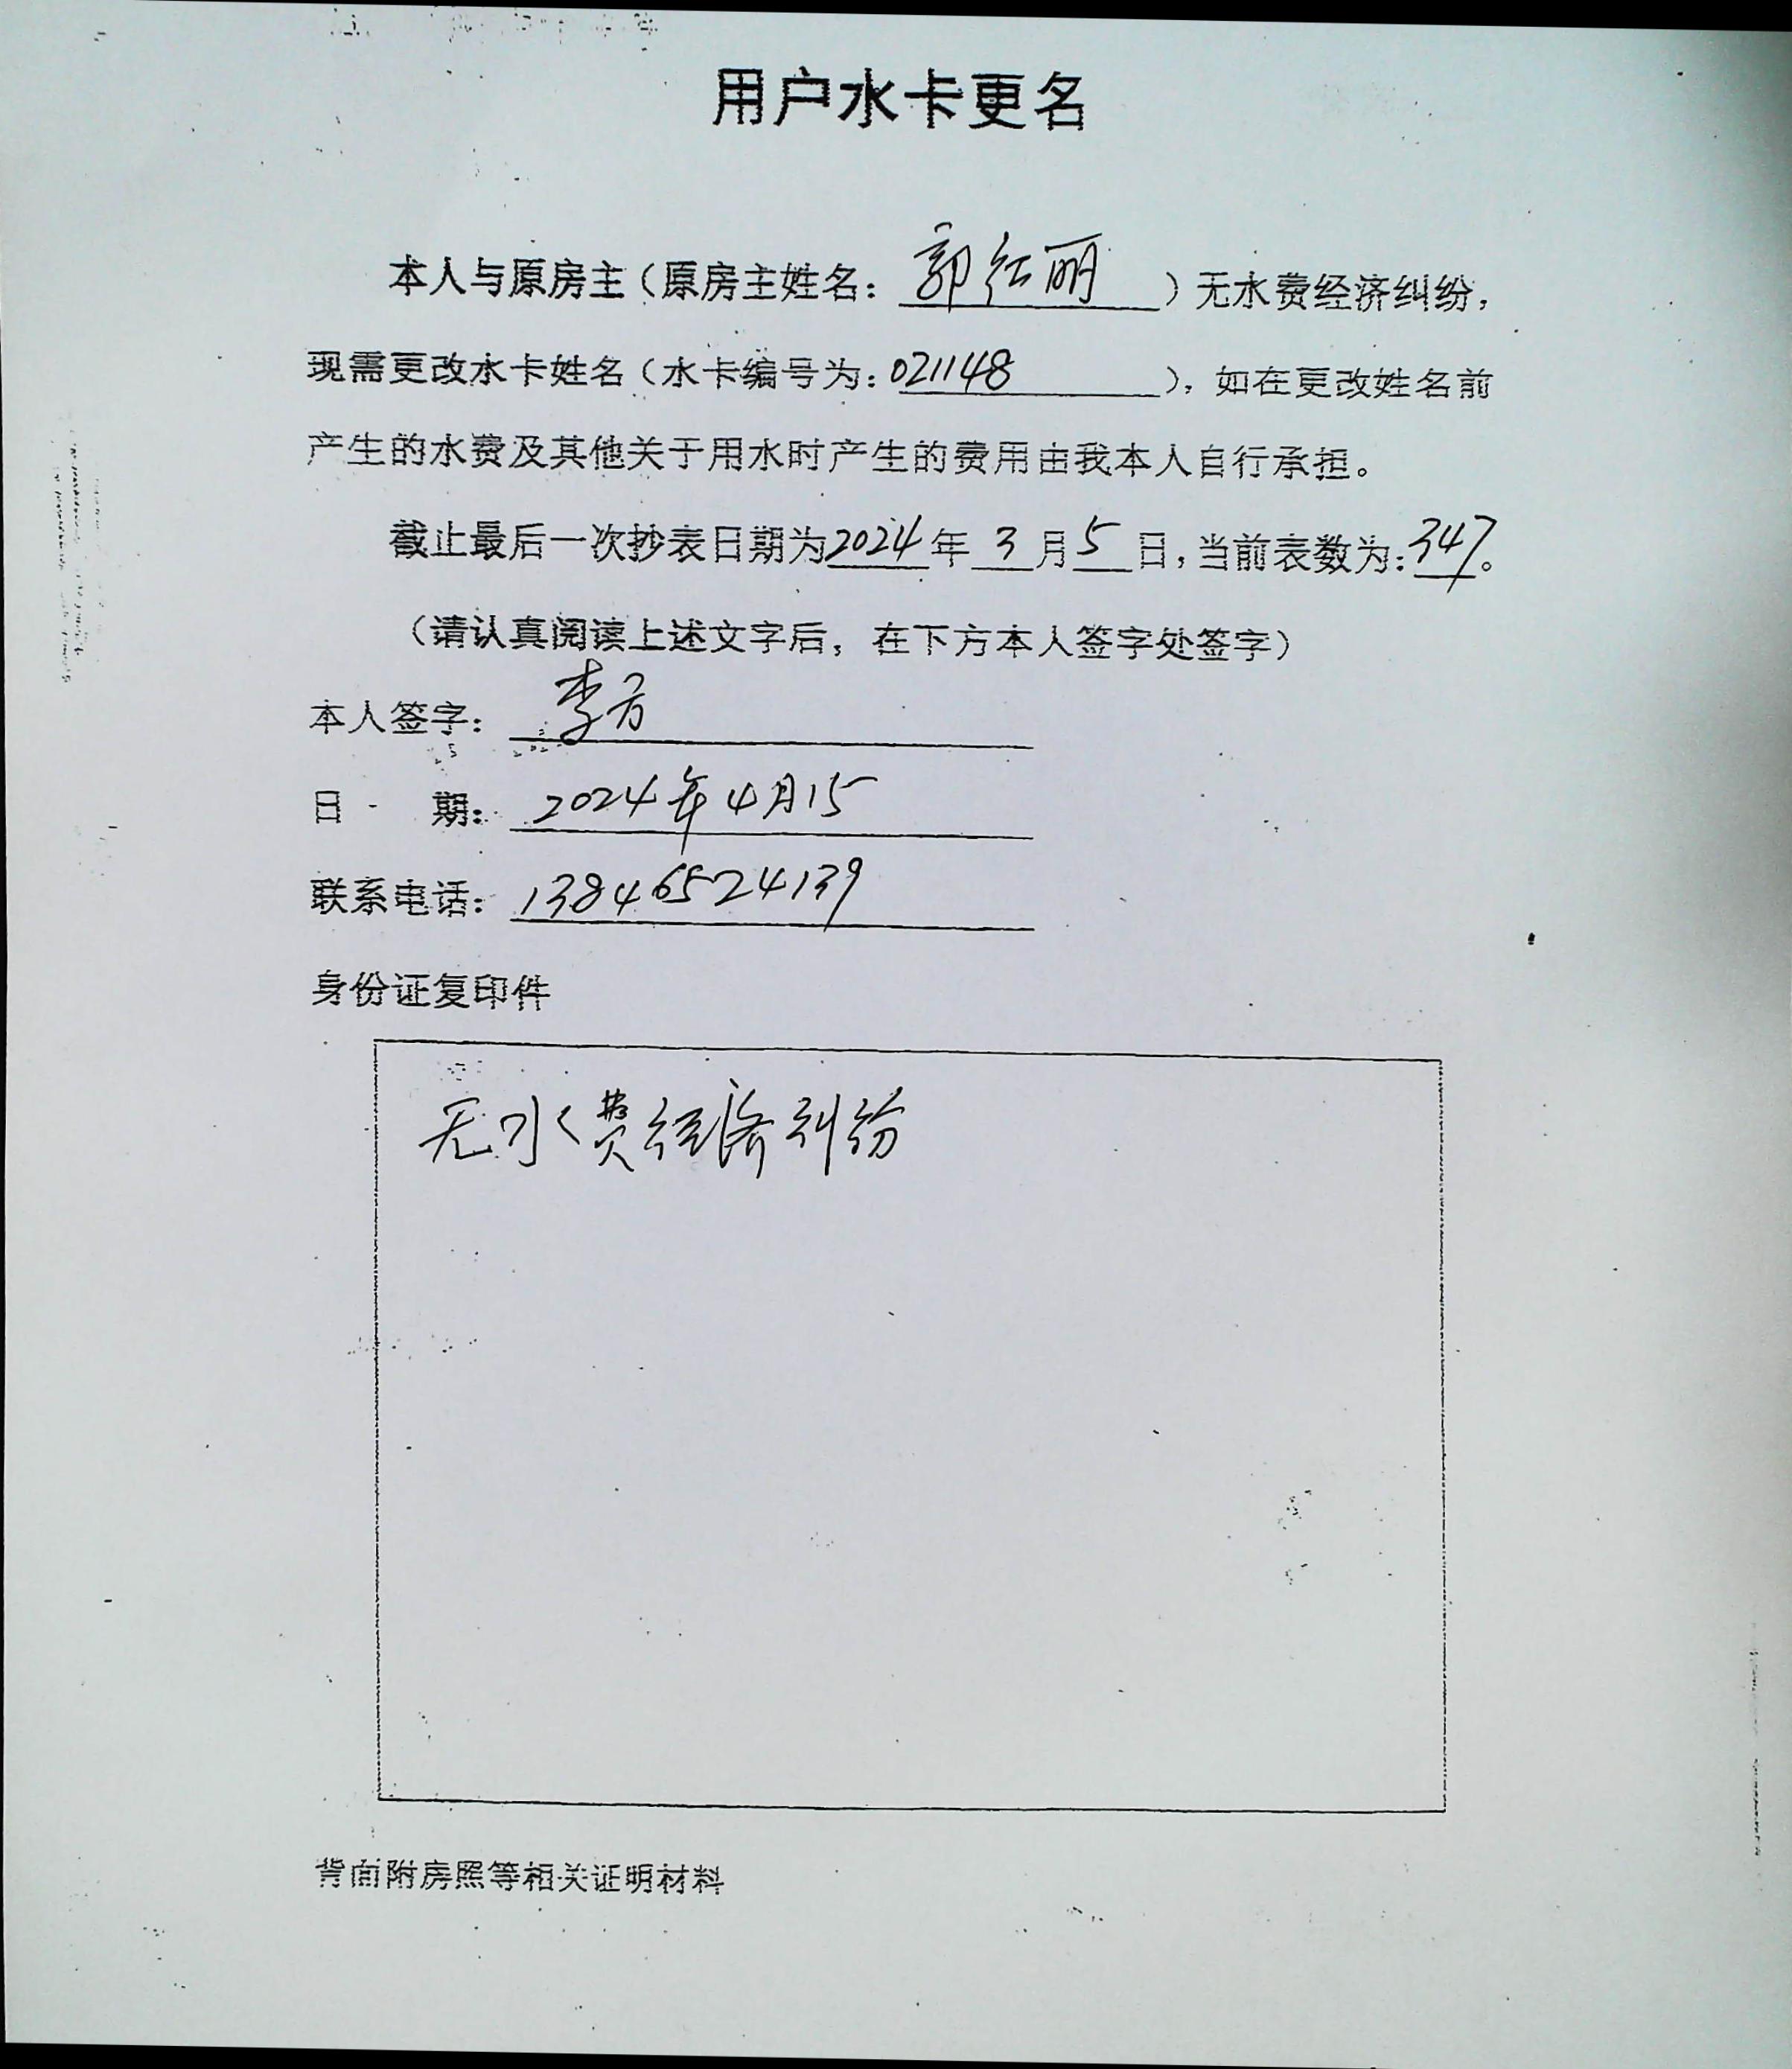 用户水卡更名
本人与原房主（原房主姓名：郭红丽）无水费经济纠纷，
现需更改水卡姓名（水卡编号为：021148），如在更改姓名前
产生的水费及其他关于用水时产生的费用由我本人自行承担。
截止最后一次抄表日期为2024年3月5日，当前表数为：347。
（请认真阅读上述文字后，在下方本人签字处签字）
本人签字：李方
日期：2024年4月15
联系电话：13846524139
身份证复印件
无水费经济纠纷
背面附房照等相关证明材料